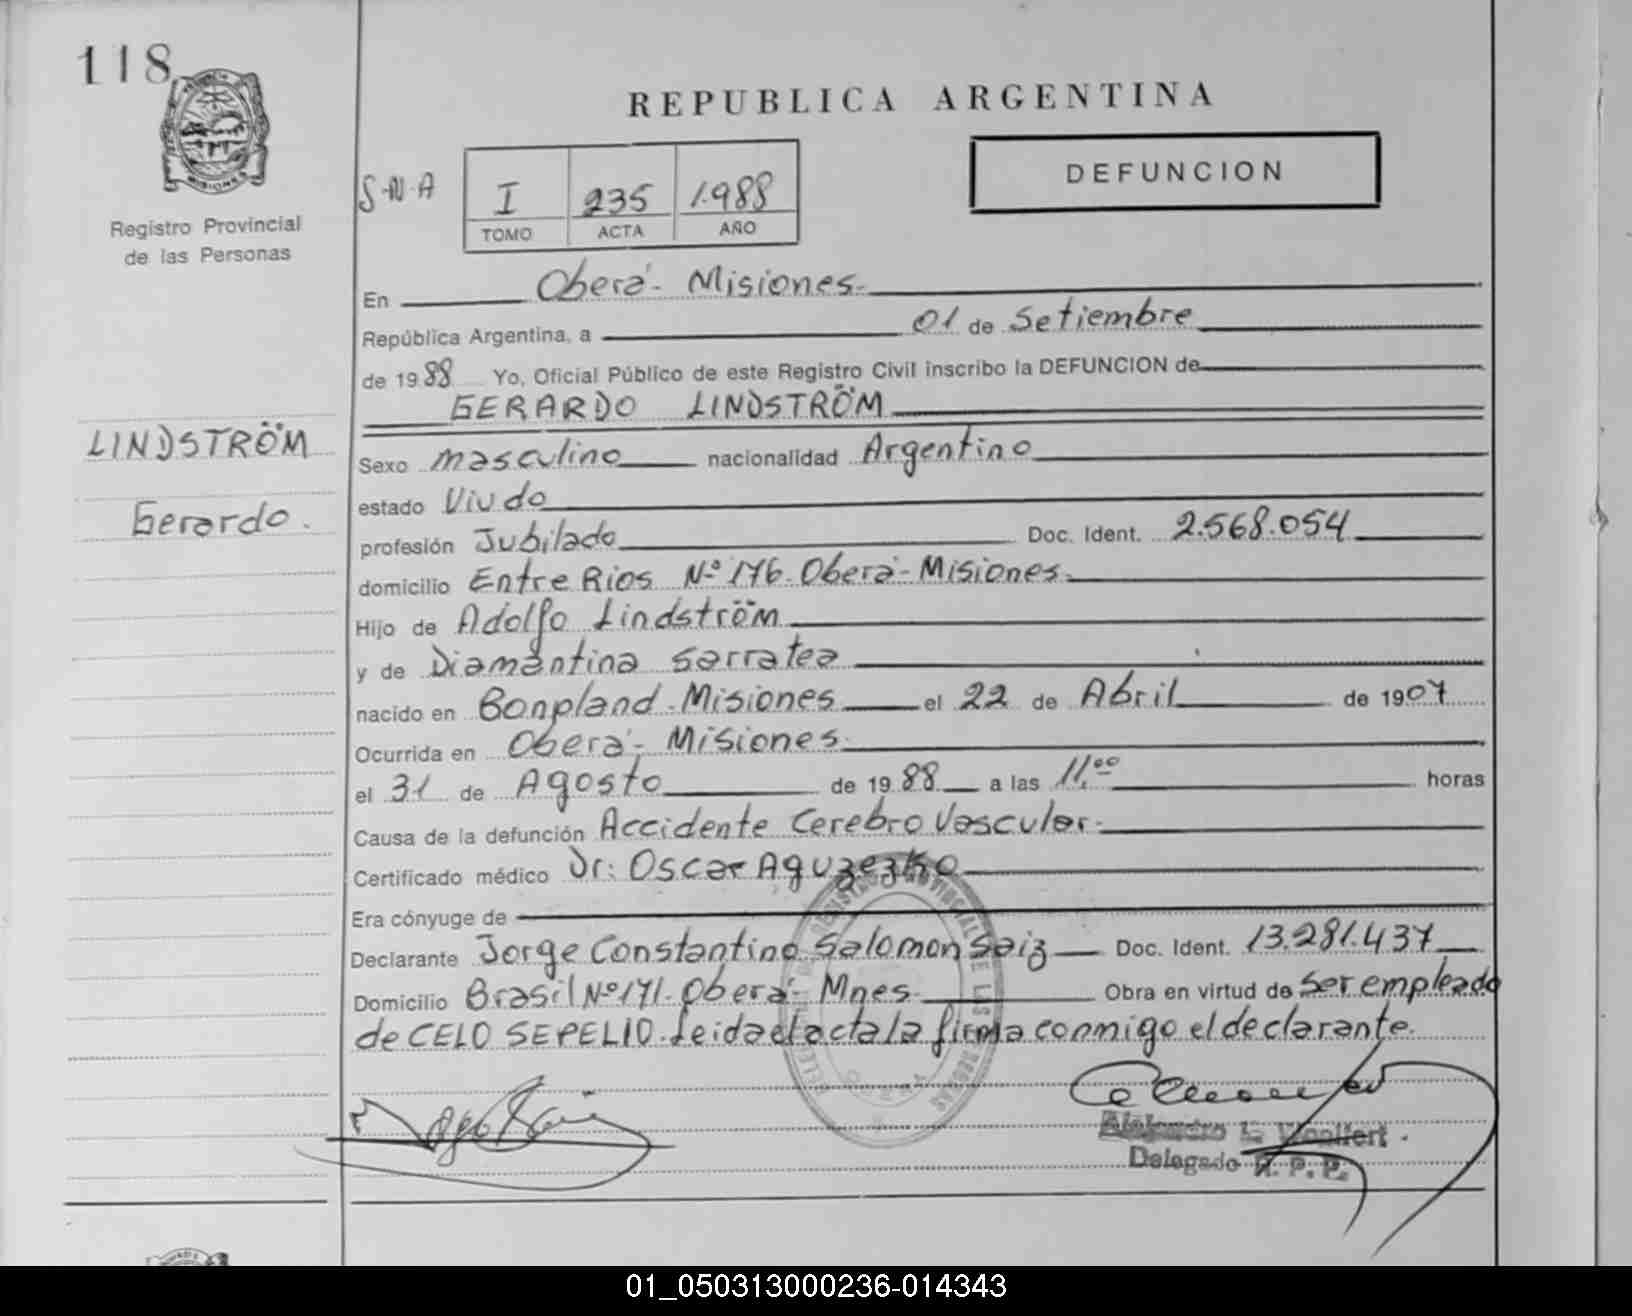 118
MISIONES
Registro Provincial
de las Personas
REPUBLICA ARGENTINA
S.N.A
I 235 1.988
TOMO ACTA AÑO
DEFUNCION
En Oberá - Misiones.
República Argentina, a 01 de Setiembre
de 1988 Yo, Oficial Público de este Registro Civil inscribo la DEFUNCION de
GERARDO LINDSTRÖM
LINDSTRÖM
Gerardo.
Sexo masculino nacionalidad Argentino
estado Viudo
profesión Jubilado Doc. Ident. 2.568.054
domicilio Entre Rios Nº 176. Oberá - Misiones.
Hijo de Adolfo Lindström
y de Diamantina Sarratea
nacido en Bonpland - Misiones el 22 de Abril de 1907
Ocurrida en Oberá - Misiones.
el 31 de Agosto de 1988 a las 11,00 horas
Causa de la defunción Accidente Cerebro Vascular.
Certificado médico Dr: Oscar Aguzezko
Era cónyuge de
Declarante Jorge Constantino Salomon Saiz Doc. Ident. 13.281.437
Domicilio Brasil Nº 171. Oberá - Mnes. Obra en virtud de ser empleado
de CELO SEPELIO. Leida el acta la firma conmigo el declarante.
Delegado R. P. P.
01_050313000236-014343